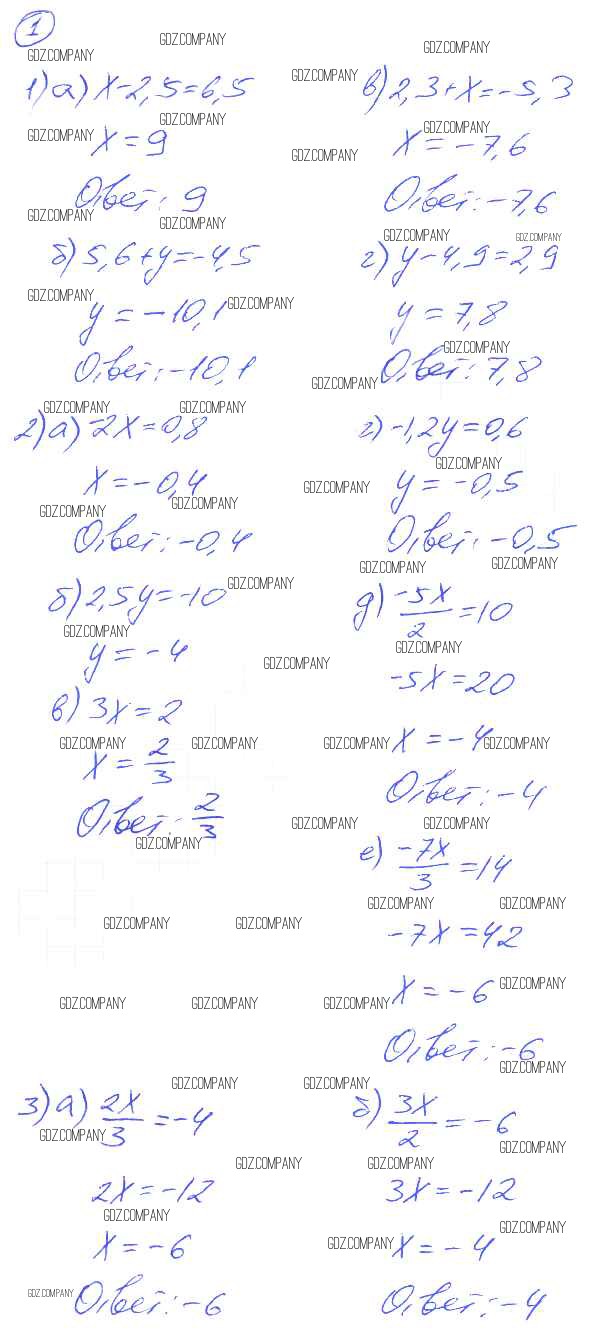 1
1) а) x-2,5=6,5
x = 9
Ответ: 9
б) 5,6+y=-4,5
y = -10,1
Ответ: -10,1
в) 2,3+x=-5,3
x = -7,6
Ответ: -7,6
г) y-4,9=2,9
y = 7,8
Ответ: 7,8
2) а) -2x=0,8
x = -0,4
Ответ: -0,4
б) 2,5y=-10
y = -4
в) 3x = 2
x = 2/3
Ответ: 2/3
г) -1,2y=0,6
y = -0,5
Ответ: -0,5
д) -5x/2 = 10
-5x = 20
x = -4
Ответ: -4
е) -7x/3 = 14
-7x = 42
x = -6
Ответ: -6
3) а) 2x/3 = -4
2x = -12
x = -6
Ответ: -6
б) 3x/2 = -6
3x = -12
x = -4
Ответ: -4
GDZ.COMPANY